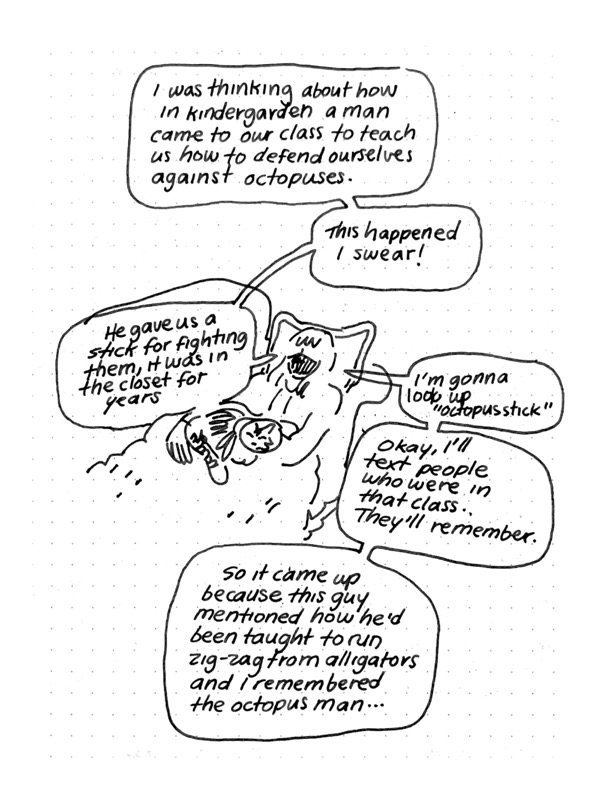 I was thinking about how
in kindergarden a man
came to our class to teach
us how to defend ourselves
against octopuses.
This happened
I swear!
He gave us a
stick for fighting
them, it was in
the closet for
years
I'm gonna
look up
"octopus stick"
Okay, I'll
text people
who were in
that class..
They'll remember.
So it came up
because this guy
mentioned how he'd
been taught to run
zig-zag from alligators
and I remembered
the octopus man...